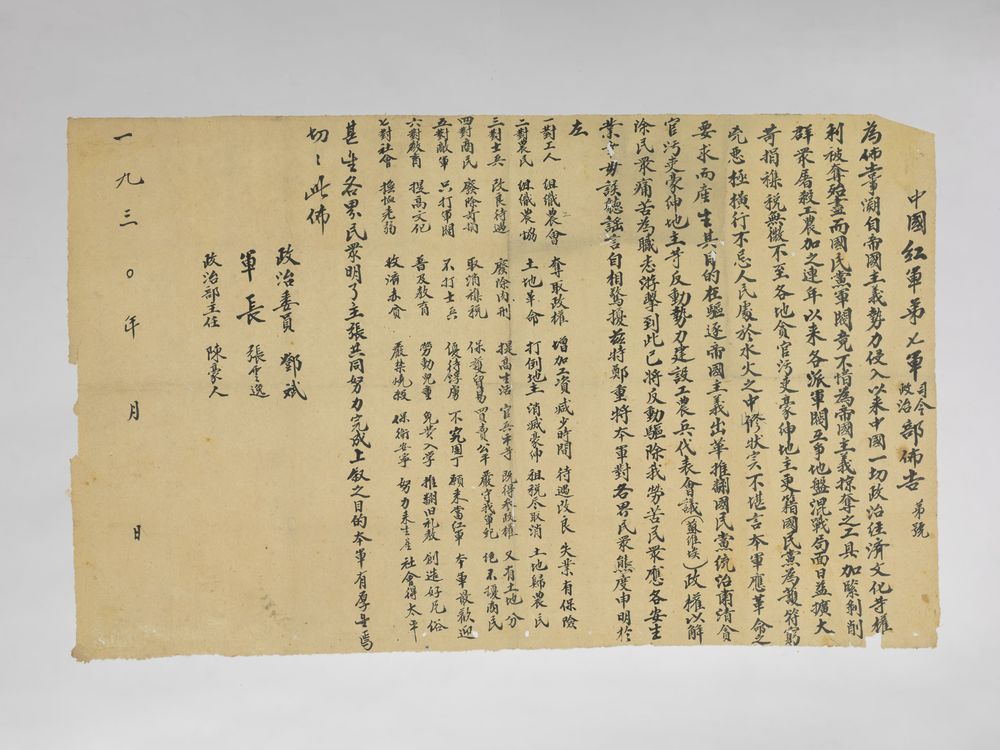 中國紅軍第七軍司令政治部佈告 第 號
為佈告事溯自帝國主義勢力侵入以來中國一切政治経済文化等權
利被奪殆盡而國民黨軍閥竟不惜為帝國主義掠奪之工具加緊剝削
群眾屠殺工農加之連年以來各派軍閥互爭地盤混戰局面日益擴大
苛捐襍税無微不至各地貪官污吏豪紳地主更藉國民黨為護符窮
兇悪極横行不忌人民處於水火之中修狀実不堪言本軍應革命之
要求而產生其目的在驅逐帝國主義出華推翻國民黨统治肅清貪
官污吏豪紳地主等反動勢力建設工農兵代表會議(蘇維埃)政權以解
除民眾痛苦為職志游擊到此已將反動驅除我勞苦民眾應各安生
業切毋誤聽謡言自相驚擾兹特鄭重將本軍對各界民眾態度申明於
左
一對工人 組織農會 奪取政權 增加工資 減少時間 待遇改良 失業有保險
二對農民 組織農協 土地革命 打倒地主 消滅豪紳 租税尽取消 土地歸農民
三對士兵 改良待遇 廢除肉刑 提高生活 官兵平等 既得参政權 又有土地分
四對商民 廢除苛捐 取消襍税 保護貿易 買賣公平 嚴守我軍紀 絕不擾商民
五對敵軍 只打軍閥 不打士兵 優待俘虜 不究團丁 願来當红軍 本軍最歡迎
六對教育 提高文化 普及教育 勞動兒童 免費入學 推翻旧礼教 創造好风俗
七對社會 撫恤老弱 救濟赤貧 嚴禁燒殺 保衛安寧 努力来生産 社會得太平
甚望各界民眾明了主張共同努力完成上叙之目的本軍有厚望焉
切切此佈
政治委員 鄧斌
軍長 張雲逸
政治部主任 陳豪人
一九三〇年 月 日